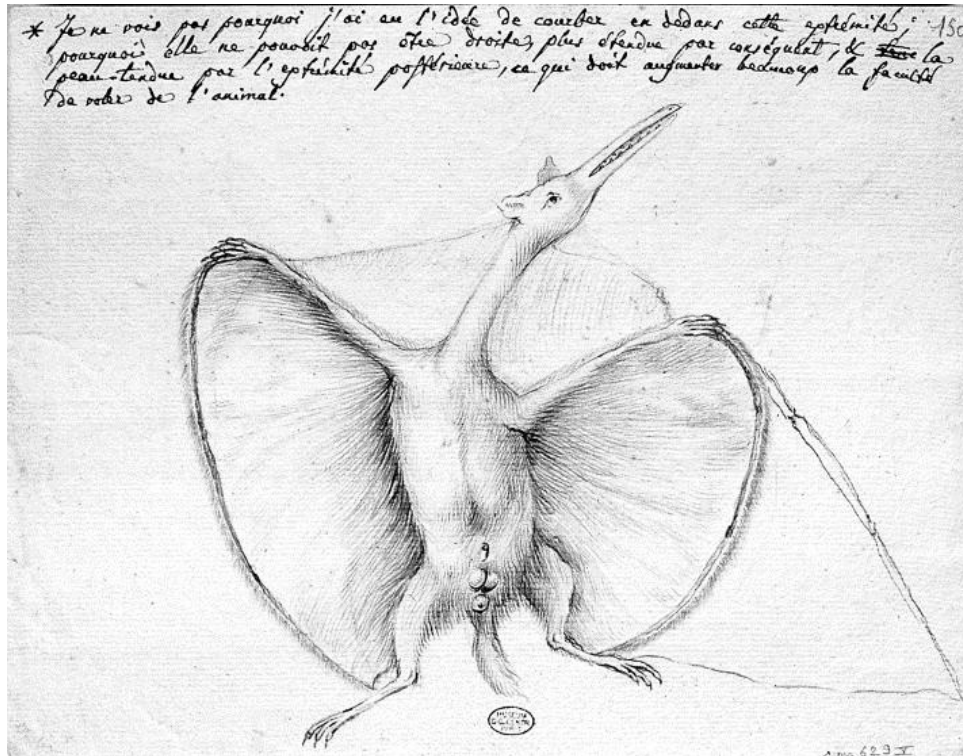 * Je ne vois pas pourquoi j'ai eu l'idée de courber en dedans cette extrémité; 150
pourquoi elle ne pouvoit pas être droite, plus étendue par conséquent, & la
peau tendue par l'extrémité postérieure, ce qui doit augmenter beaucoup la faculté
de voler de l'animal.
MUSEUM
629 V